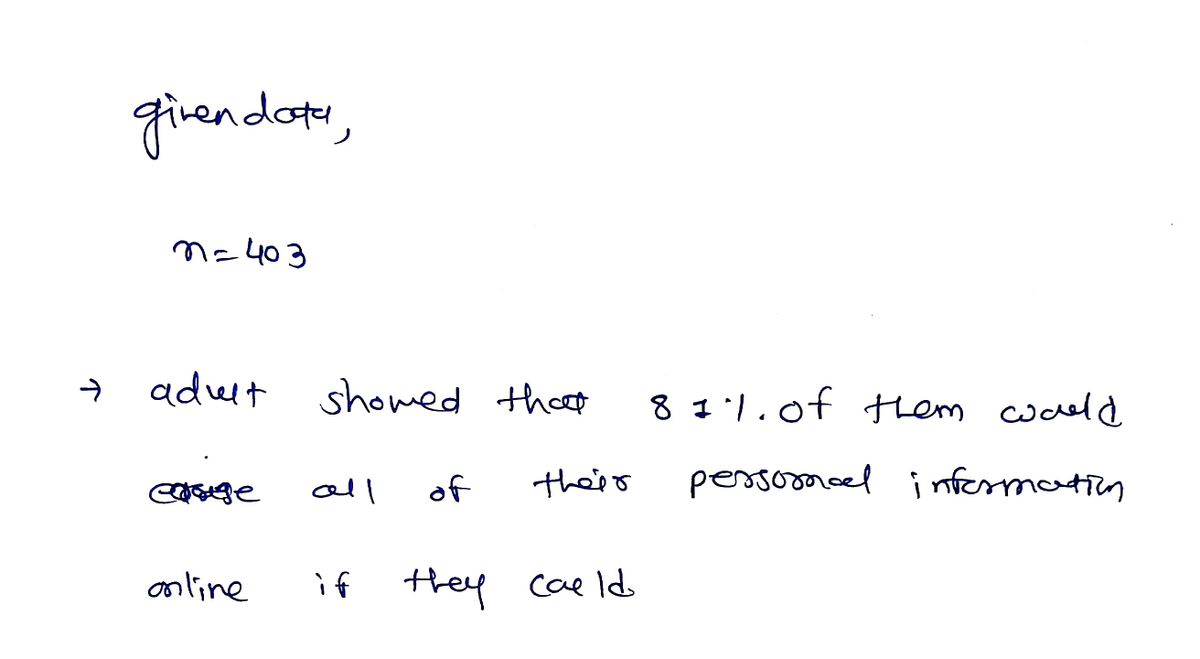 given data,
n = 403
→ adult showed that 81%. of them would
erase all of their personal information
online if they could